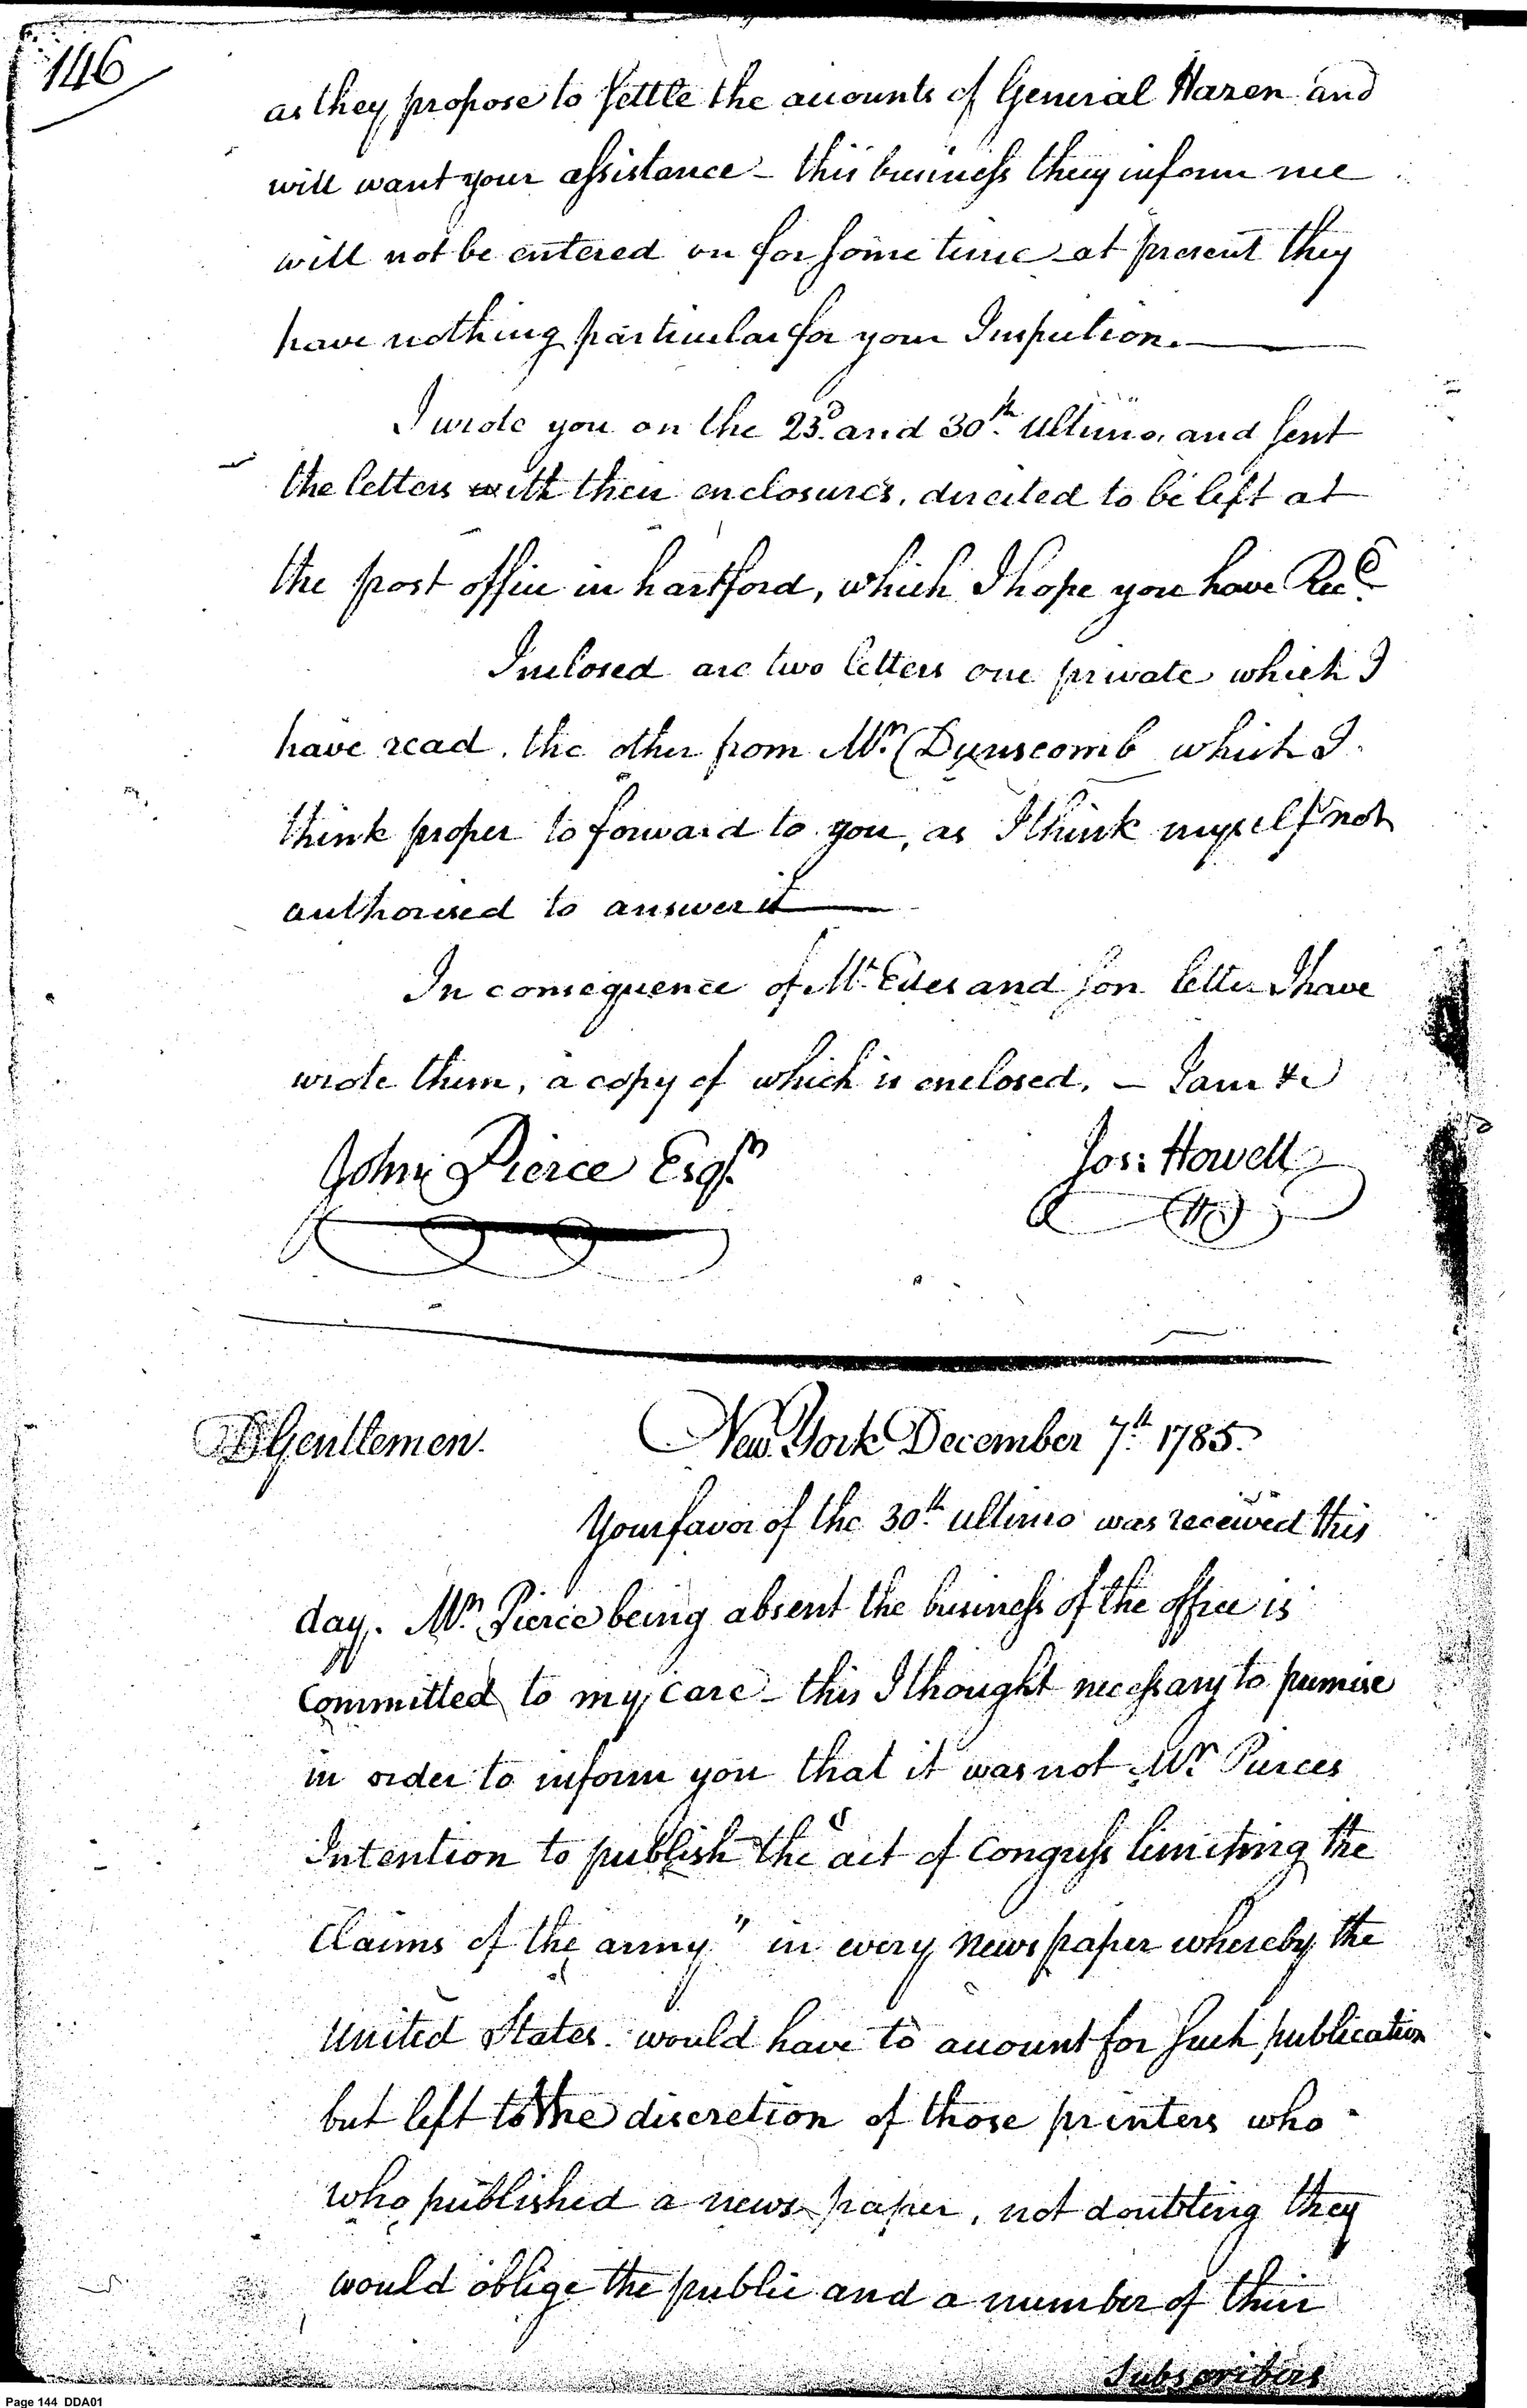 146
as they propose to settle the accounts of General Hazen and
will want your assistance – this business they inform me
will not be entered on for some time – at present they
have nothing particular for your Inspection. —
I wrote you on the 23.d and 30.th Ultimo, and sent
the letters with their enclosures, directed to be left at
the post office in hartford, which I hope you have Rec.d
Inclosed are two letters one private which I
have read. the other from Mr. Dunscomb which I
think proper to forward to you, as I think myself not
authorised to answer it —
In consequence of Mr. Edes and son letter I have
wrote them, a copy of which is enclosed. – I am &c
John Pierce Esqr.
Jos: Howell
Gentlemen.
New York December 7.th 1785.
Your favor of the 30.th ultimo was received this
day. Mr. Pierce being absent the business of the office is
Committed to my care – this I thought necessary to premise
in order to inform you that it was not Mr. Pierces
Intention to publish the "act of Congress limiting the
Claims of the army" in every news paper whereby the
United States would have to account for such publication
but left to the discretion of those printers who
who published a news paper, not doubting they
would oblige the public and a number of their
Subscribers
Page 144 DDA01